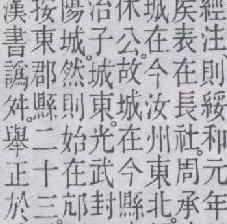 經注、則綏和元年
矦表在長社。周承
城在今汝州東北。
休公。故城在今縣
治子城東。光武封
陽城。然則始在邟
按東郡縣二十三。
漢書譌舛舉正於